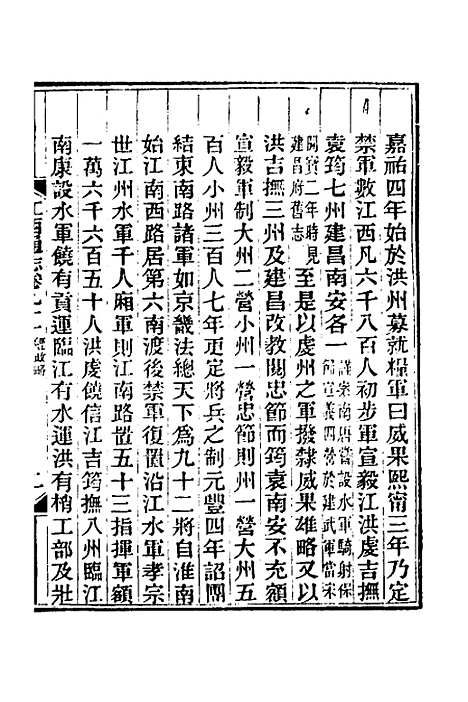 嘉祐四年始於洪州募就糧軍曰威果熙甯三年乃定
禁軍數江西凡六千八百人初步軍宣毅江洪虔吉撫
袁筠七州建昌南安各一謹案南唐嘗設水軍騎射保節宣義四營於建武軍當宋
開寶二年時見建昌府舊志至是以虔州之軍撥隸威果雄略又以
洪吉撫三州及建昌改教閱忠節而筠袁南安不充額
宣毅軍制大州二營小州一營忠節則州一營大州五
百人小州三百人七年更定將兵之制元豐四年詔團
結東南路諸軍如京畿法總天下爲九十二將自淮南
始江南西路居第六南渡後禁軍復置沿江水軍孝宗
世江州水軍千人廂軍則江南路置五十三指揮軍額
一萬六千六百五十人洪虔饒信江吉筠撫八州臨江
南康設水軍饒有貢運臨江有水運洪有梢工部及壯
江西通志卷九十二 經政略